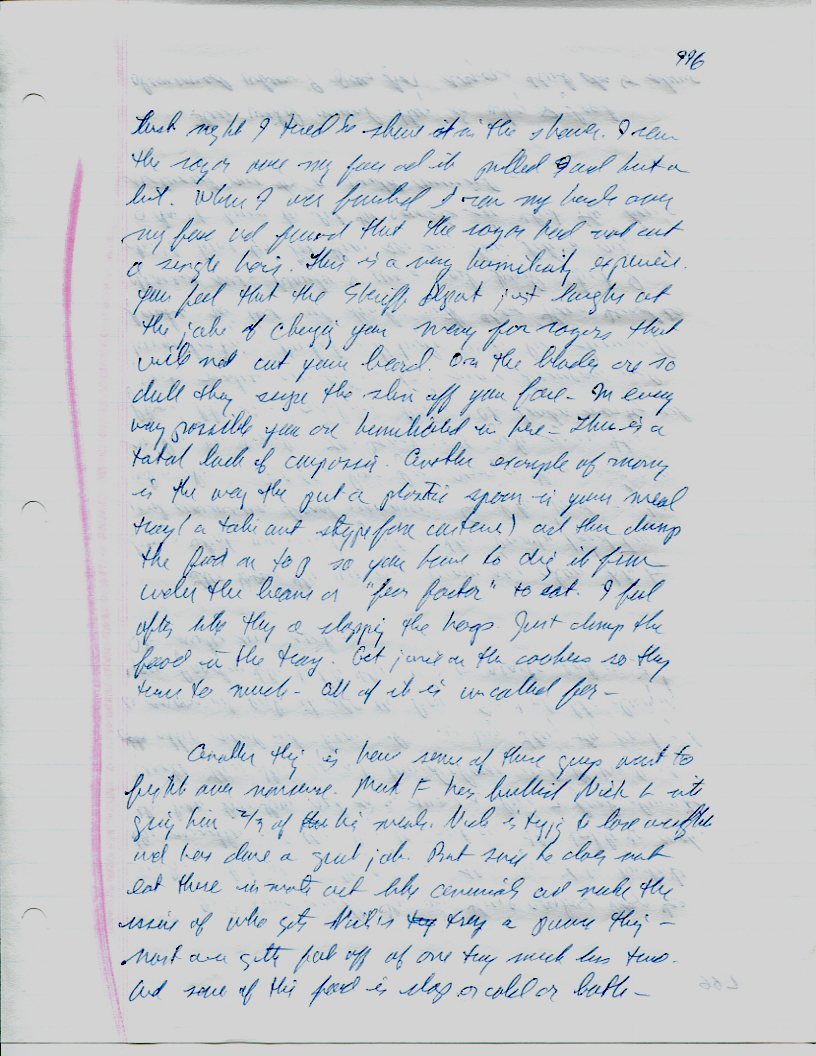 996
last night I tried to shave it in the shower. I ran
the razor over my face and it pulled and hurt a
bit. When I was finished I ran my hands over
my face and found that the razor had not cut
a single hair. This is a very humiliating experience.
You feel that the Sheriff Depart just laughs at
the joke of charging your money for razors that
will not cut your beard. Or the blades are so
dull they the skin off your face - In every
way possible you are humiliated in here - There is a
total lack of compassion. Another example of many
is the way the put a plastic spoon in your meal
tray (a take out ) and then dump
the food on top so you have to dig it from
under the beans or "fear factor" to eat. I feel
often like they a slopping the hogs. Just dump the
food in the tray. Get on the cookies so they
to much - All of it is uncalled for -
Another thing is how some of these guys want to
fight over nonsense. Mark F has bullied Nick
him 2/3 of his meals. Nick is trying to lose weight
and has done a great job. But since he does not
eat these inmates act like and make the
issue of who gets Nick's tray a power thing -
Most are getting of one tray much less two.
And some of this food is slop or cold or both -